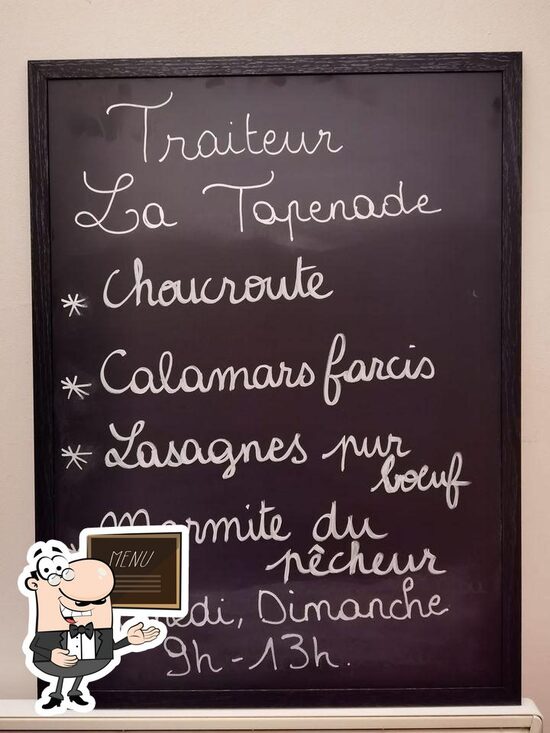 Traiteur
La Tapenade
* Choucroute
* Calamars farcis
* Lasagnes pur
bœuf
Marmite du
pêcheur
Dimanche
9h - 13h.
MENU